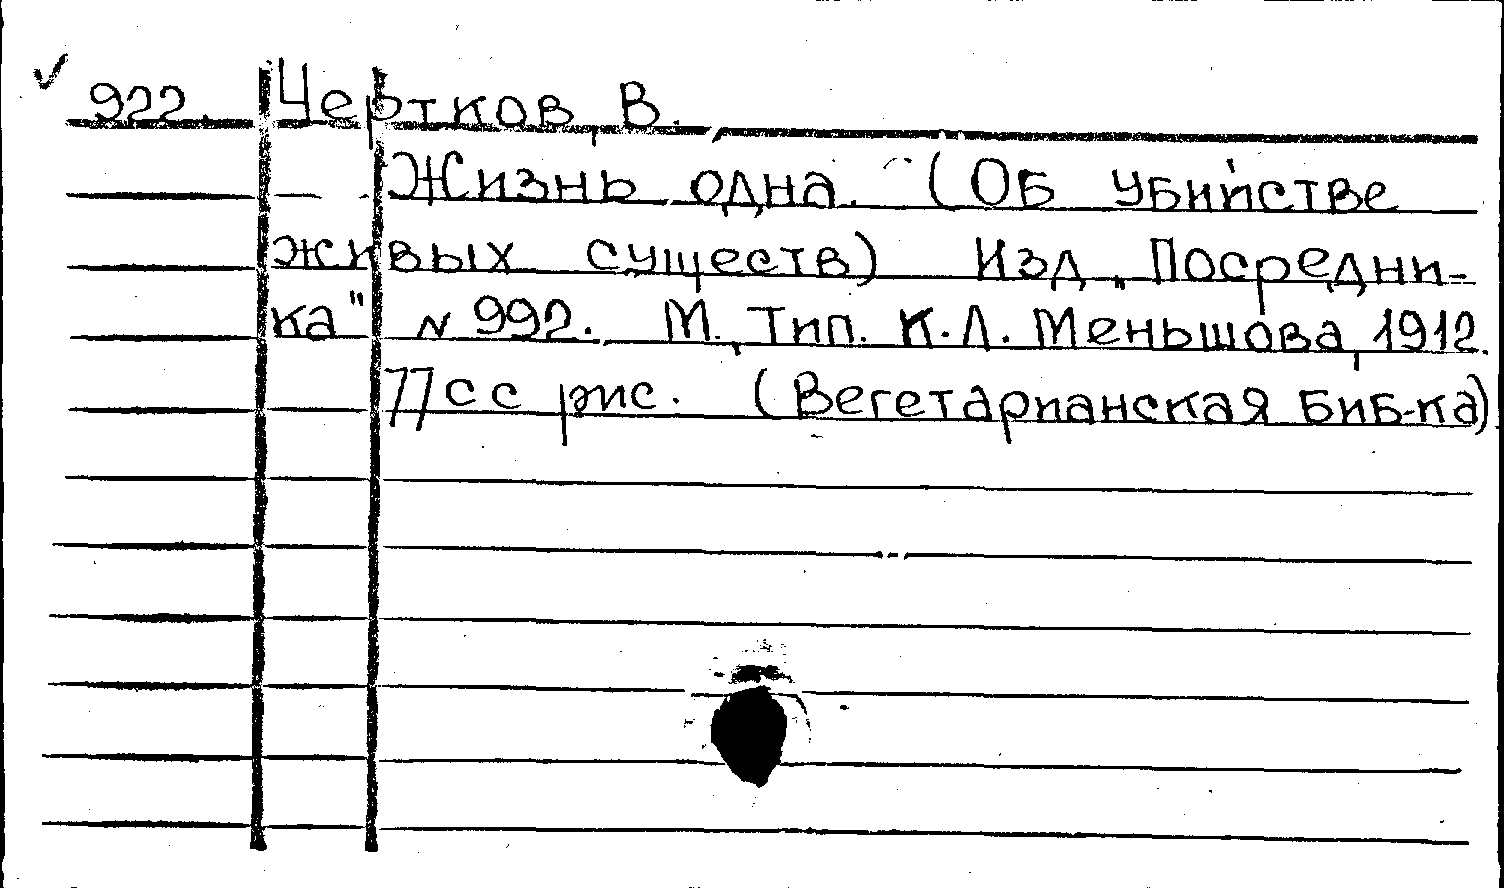 922. Чертков, В.
Жизнь одна. (Об убийстве
живых существ) Изд „Посредни-
ка" № 992. М., Тип. К.Л. Меньшова, 1912.
77 с с рис. (Вегетарианская биб-ка).